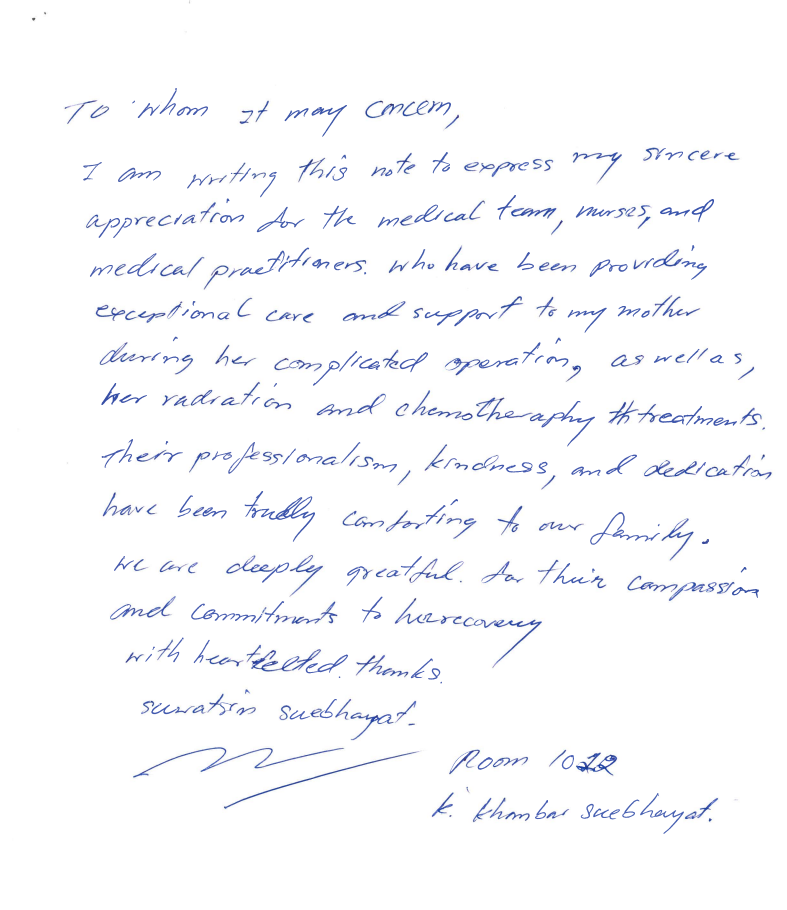 To whom It may concern,
I am writing this note to express my sincere
appreciation for the medical team, nurses, and
medical practitioners. who have been providing
exceptional care and support to my mother
during her complicated operation, as well as,
her radiation and chemotheraphy treatments.
Their professionalism, kindness, and dedication
have been truely comforting to our family.
we are deeply greatful. for their compassion
and commitments to her recovery
with heartfelted. thanks.
suwatsin suebhayat.
Room 1022
k. khambai suebhayat.